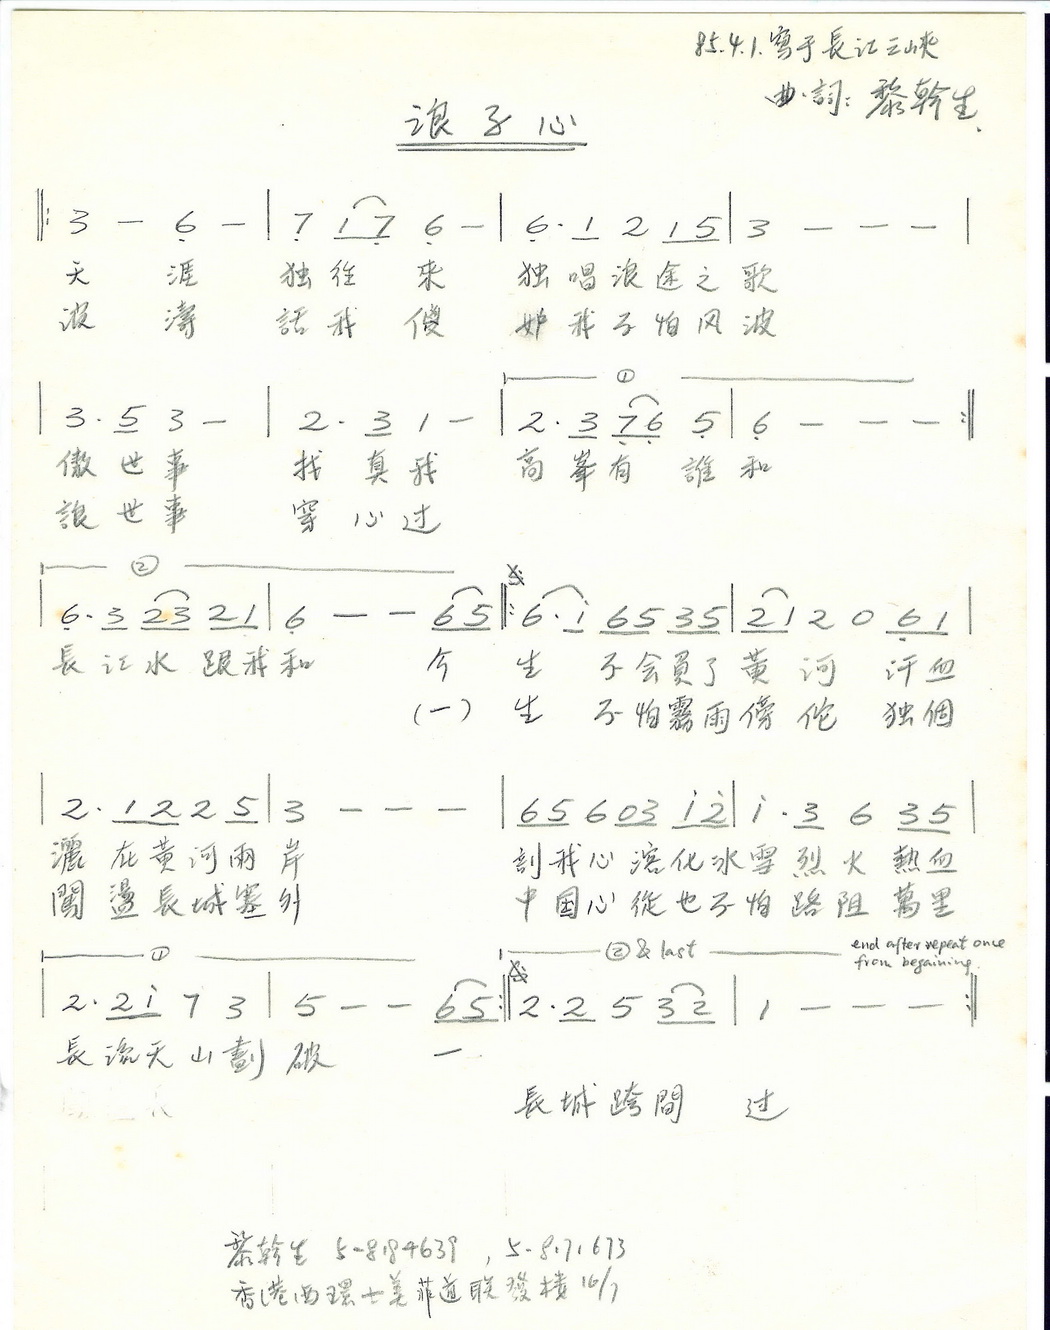 85.4.1.寫于長江三峽
曲·詞: 黎幹生
浪子心
‖: 3 - 6̣ - | 7̣ 1 7̣ 6̣ - | 6̣· 1 2 1 5 | 3 - - - |
天 涯 独往 來 独唱浪途之歌
波 濤 話我 傻 妒我不怕风波
①
3· 5 3 - | 2· 3 1 - | 2· 3 7̣ 6̣ 5̣ | 6̣ - - - :‖
傲世事 找真我 高峯有 誰和
說世事 穿心过
②
6̣· 3 2 3 2 1 | 6̣ - - 6 5 ‖: 6· i 6 5 3 5 | 2 1 2 0 6̣ 1 |
長江水跟我和 今 生 不会負了黃河 汗血
(一) 生 不怕霧雨滂沱 独個
2· 1 2 2 5 | 3 - - - | 6 5 6 0 3 i 2̇ | i· 3 6 3 5 |
灑在黃河兩岸 剖我心溶化冰雪烈火熱血
闖盪長城塞外 中国心從也不怕路阻萬里
① ② & last end after repeat once
from begaining
2· 2 i 7 3 | 5 - - 6 5 :‖ 2· 2 5 3 2 | 1 - - - :‖
長流天山劃破 一
長城跨間 过
黎幹生 5-8184639 , 5-8171673
香港西環士美菲道联發樓16/7